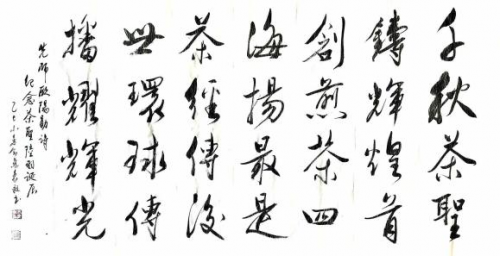 千秋茶聖
鑄輝煌首
創煎茶四
海揚最是
茶經傳後
世環球傳
播耀輝光
先師歐陽勛詩
紀念茶聖陸羽誕辰